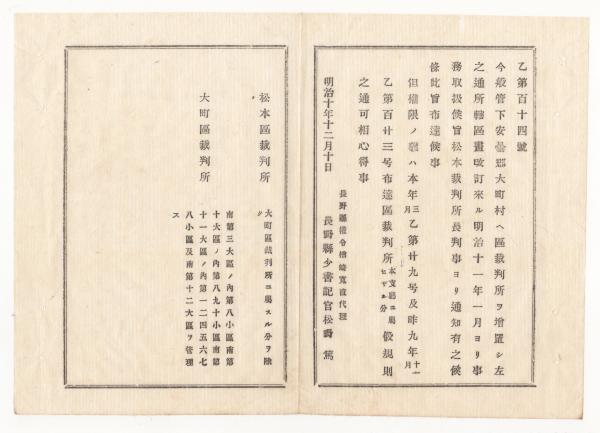 乙第百十四號
今般管下安曇郡大町村ヘ區裁判所ヲ增置シ左
之通所轄區畫改訂來ル明治十一年一月ヨリ事
務取扱候旨松本裁判所長判事ヨリ通知有之候
條此旨布達候事
但權限ノ義ハ本年三月乙第廿九号及昨九年十一月
乙第百廿三号布達區裁判所本支廳ニ屬セサル分假規則
之通可相心得事
明治十年十二月十日
長野縣權令楢崎寬直代理
長野縣少書記官松野篤
松本區裁判所
大町區裁判所ニ屬スル分ヲ除
ク
大町區裁判所
南第三大區ノ內第八小區南第
十大區ノ內第八九十小區南第
十一大區ノ內第一二四五六七
八小區及南第十二大區ヲ管理
ス